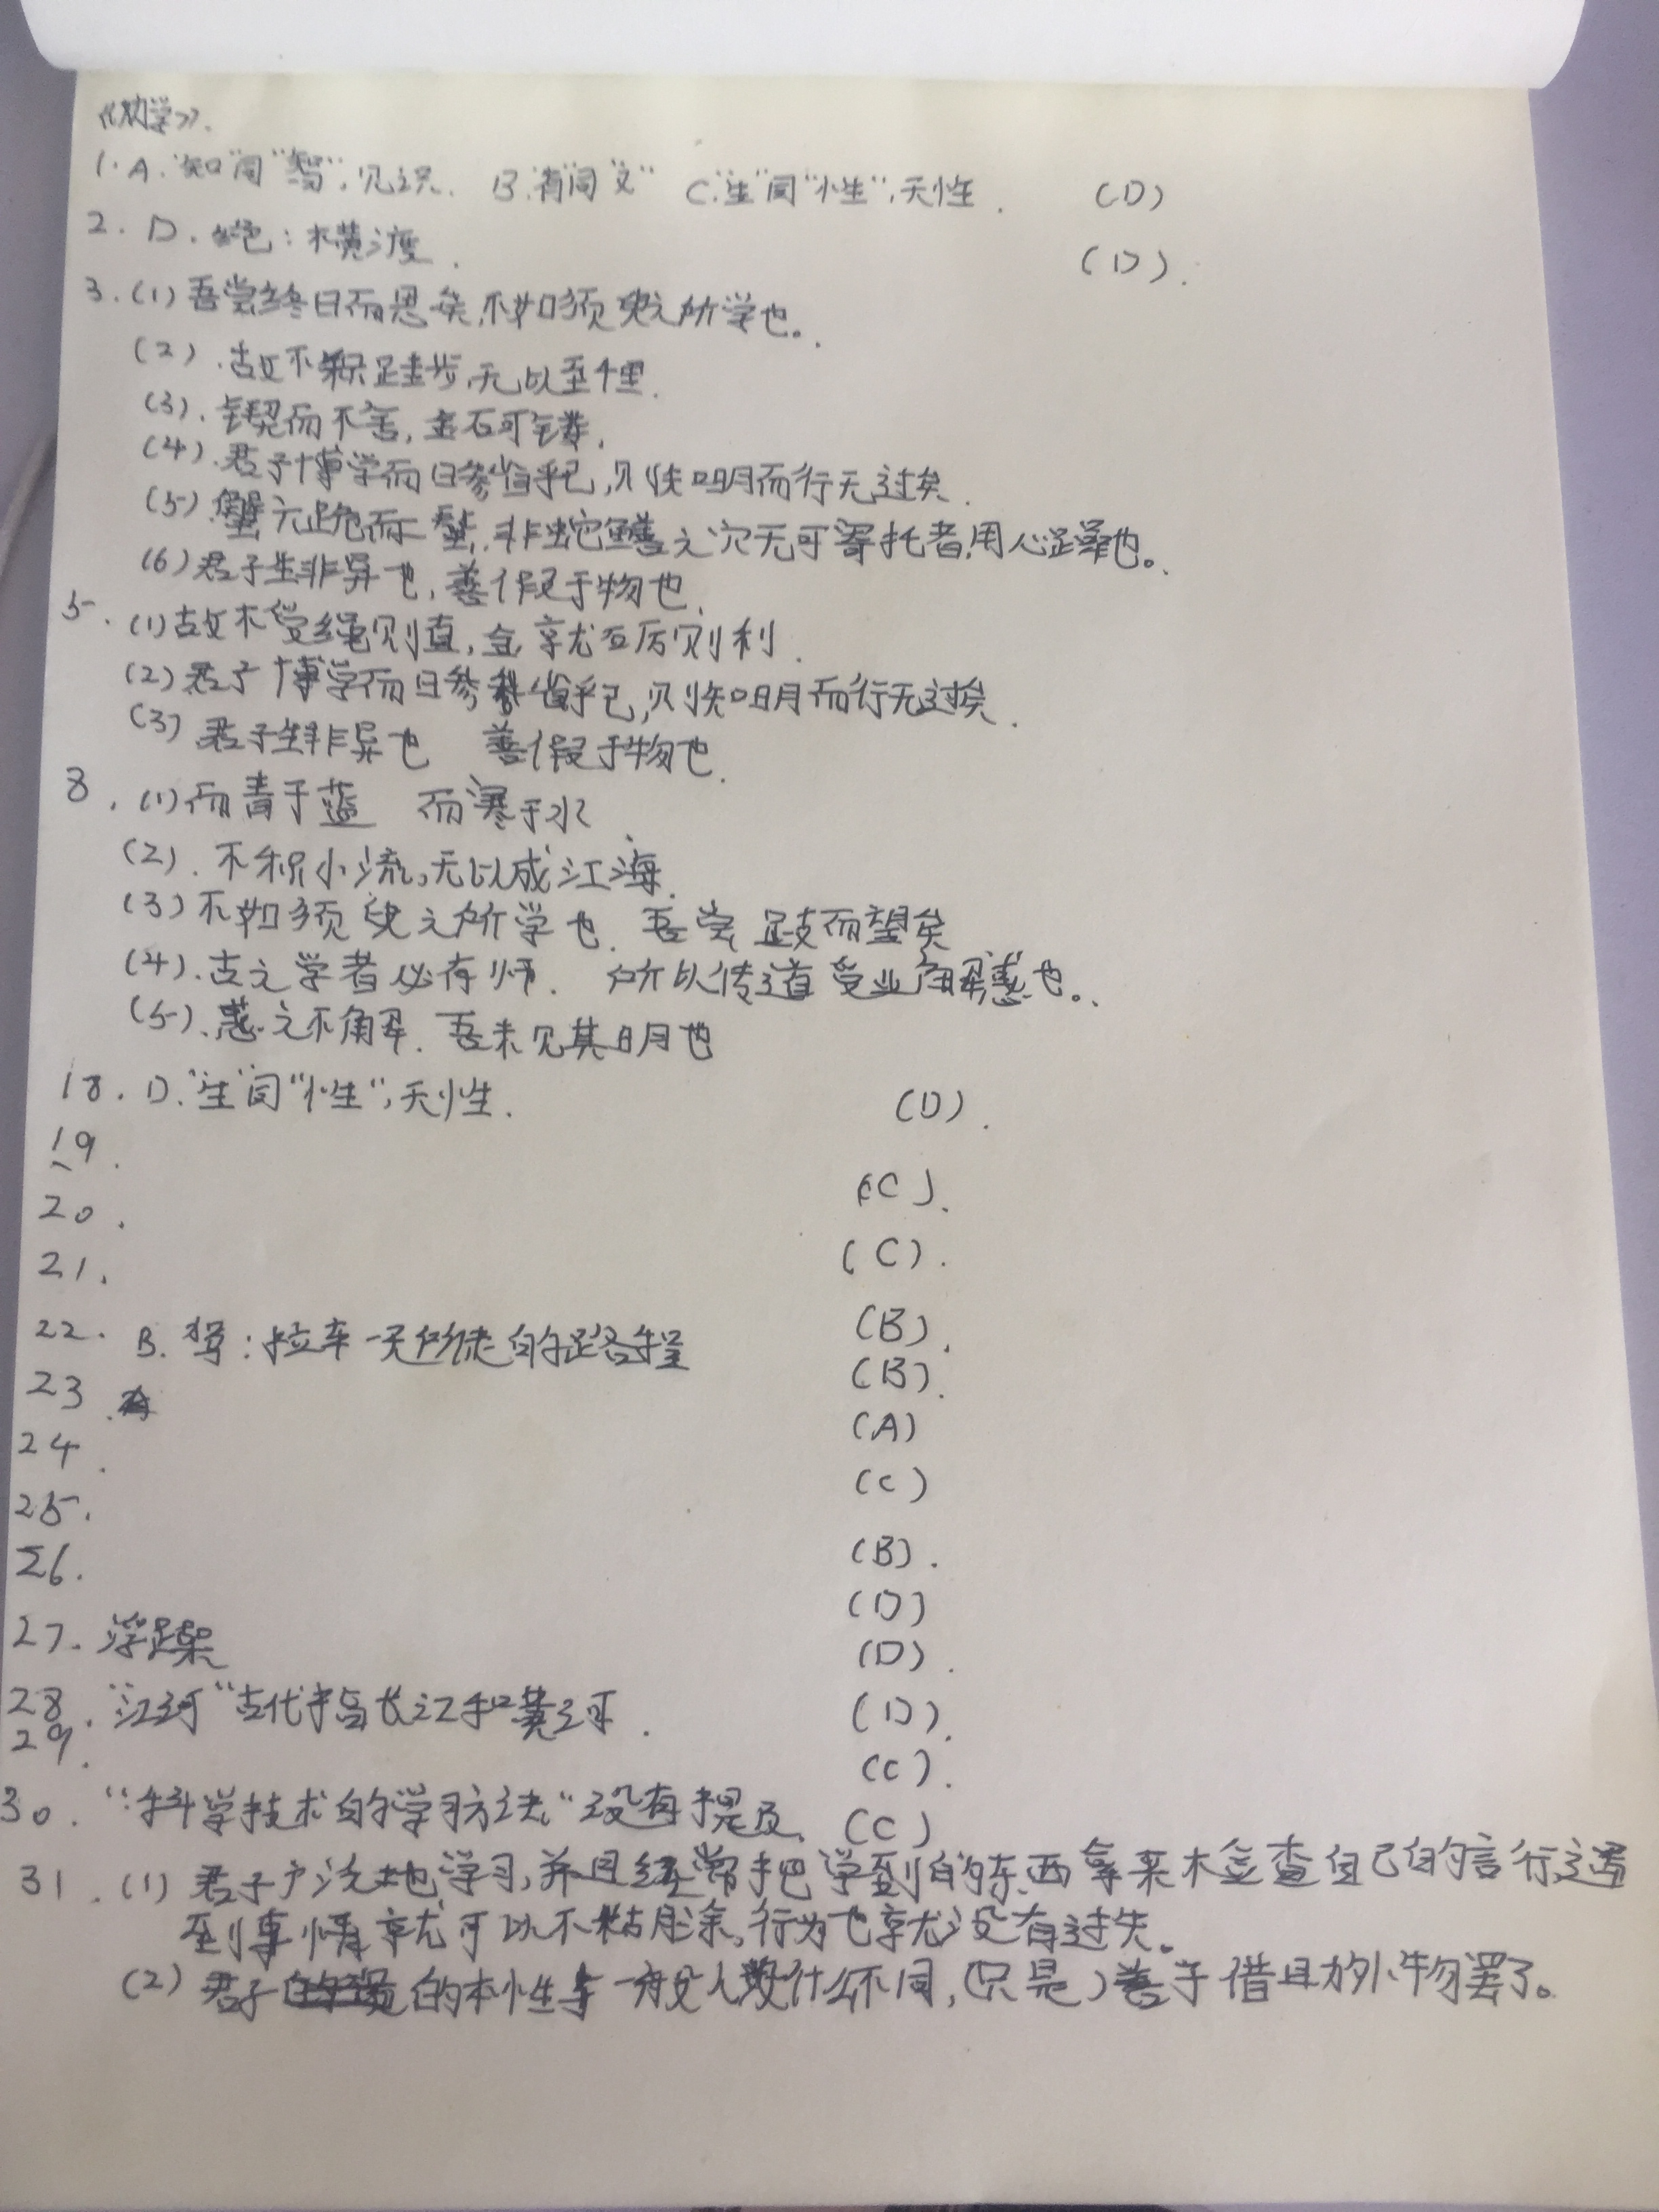 《劝学》.
1. A."知"同"智",见识. B."有"同"又" C."生"同"性",天性. (D)
2. D.绝:横渡. (D).
3.(1)吾尝终日而思矣,不如须臾之所学也。
(2).故不积跬步,无以至千里.
(3).锲而不舍,金石可镂.
(4).君子博学而日参省乎己,则知明而行无过矣.
(5).蟹六跪而二螯,非蛇鳝之穴无可寄托者,用心躁也。
(6)君子生非异也,善假于物也.
5.(1)故木受绳则直,金就砺则利.
(2)君子博学而日参省乎己,则知明而行无过矣.
(3)君子生非异也 善假于物也.
8.(1)而青于蓝 而寒于水
(2).不积小流,无以成江海.
(3)不如须臾之所学也. 吾尝跂而望矣
(4).古之学者必有师. 所以传道受业解惑也。
(5).惑之不解. 吾未见其明也
18. D."生"同"性",天性. (D).
19. (C).
20. (C).
21. (B).
22. B.驾:拉车一天所走的路程 (B).
23. (A)
24. (C)
25. (B).
26. (D)
27.浮躁 (D).
28."江河"古代指长江和黄河. (D).
29. (C).
30."科学技术的学习方法"没有提及. (C)
31.(1)君子广泛地学习,并且经常把学到的东西拿来检查自己的言行,遇
到事情就可以不糊涂,行为也就没有过失。
(2)君子的本性与一般人没什么不同,(只是)善于借助外物罢了。